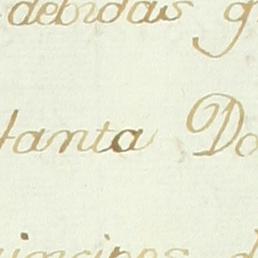 debidas g
tanta Do
principes d